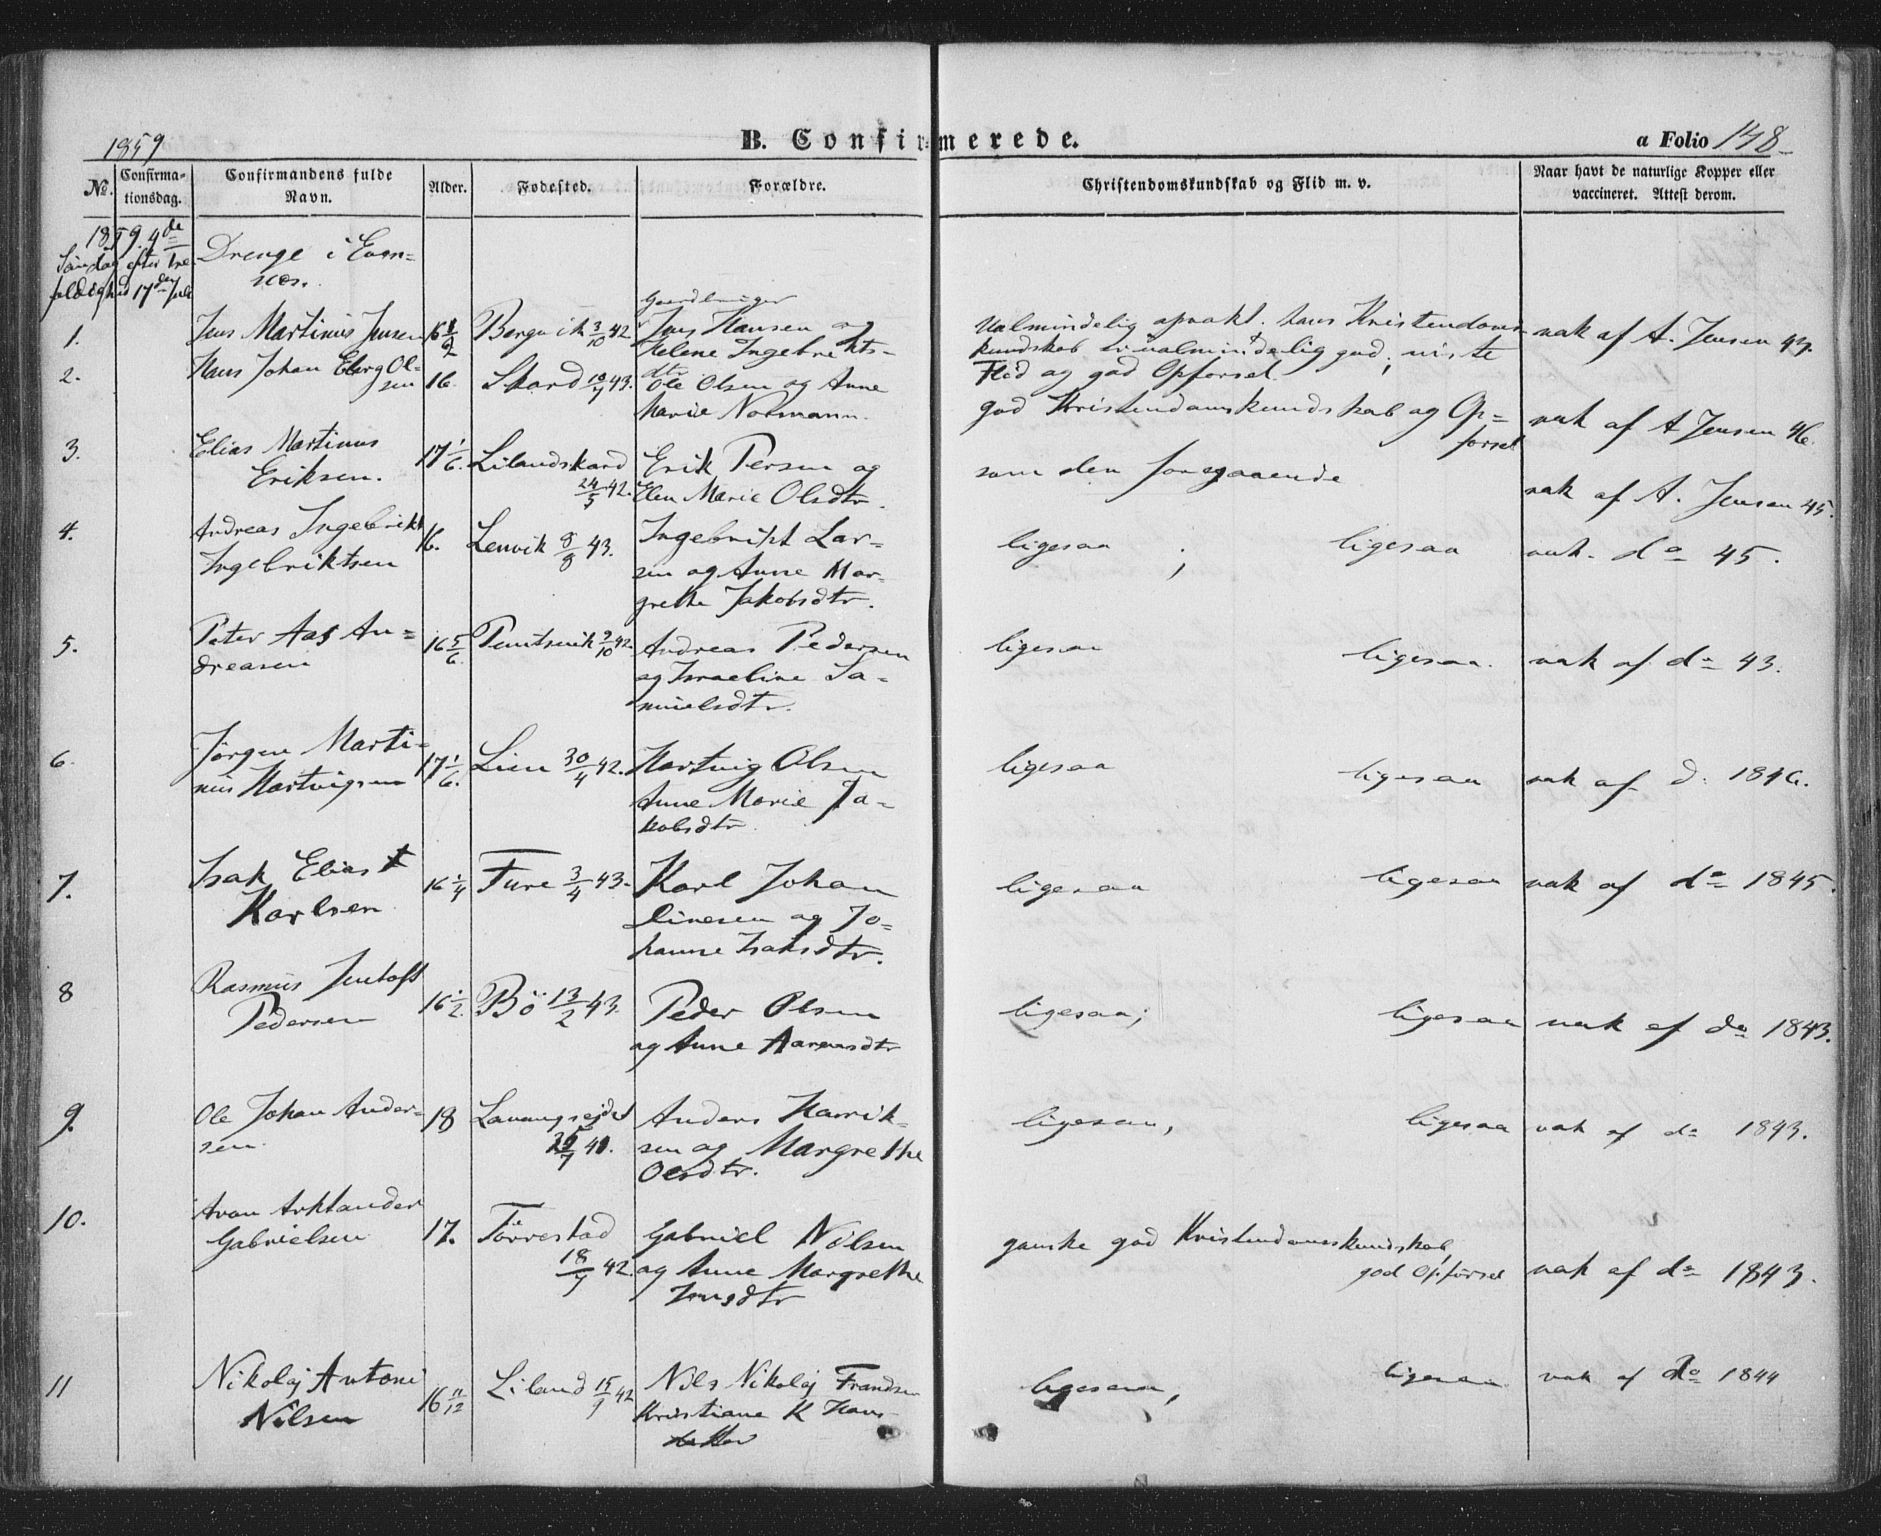 1859
B. Confirmerede.
a Folio 148
No.
Confirmationsdag.
Confirmandens fulde Navn.
Alder.
Fødested.
Forældre.
Christendomskundskab og Flid m. v.
Naar havt de naturlige Kopper eller vaccineret. Attest derom.
1859. 4de
Søndag efter Tre-
foldighed 17de Juli
Drenge i Even-
næs.
1.
Jens Martinus Jensen
16
Bergvik 3/10 42
Jens Hansen og
Helene Ingebrikts-
dtr
Ualmindelig opvakt, hans Kristendoms-
kundskab er ualmindelig god,
Flid og god Opførsel.
vak af A. Jensen 43.
2.
Hans Johan Ol-
sen
16.
Skard 43.
Ole Olsen og Anne
Marie Normann.
god Kristendomskundskab og Op-
førsel
vak af A Jensen 46.
3.
Elias Martinus
Eriksen.
17 1/6.
Lilandskard
24/5 42.
Erik Persen og
Elen Marie Olsdtr.
som den foregaaende
vak af A. Jensen 45.
4.
Andreas Ingebrikt
Ingebriktsen
16.
Lenvik 8/8 43.
Ingebrikt Lar-
sen og Anne Mar-
grethe Jakobsdtr.
ligesaa ; ligesaa
vak. do 45.
5.
Peter Aas An-
dreasen
16 5/6
2/10 42.
Andreas Pedersen
og Israeline Sa-
muelsdtr.
ligesaa ligesaa.
vak af do 43.
6.
Jørgen Marti-
nus Hartvigsen
17 1/6.
Lien 30/4 42.
Hartvig Olsen
Anne Marie Ja-
kobsdtr.
ligesaa ligesaa
vak af d. 1846.
7.
Isak Elias
Karlsen
16 1/4
Ture 3/4 43.
Karl Johan
Linesen og Jo-
hanne Isaksdtr.
ligesaa ligesaa
vak af do 1845.
8
Rasmus Jentoft
Pedersen
16 1/2.
Bö 13/2 43.
Peder Olsen
og Anne
ligesaa; ligesaa
vak af do 1843.
9.
Ole Johan Ander-
sen.
18
Lavangseidet
41.
Anders Henrik-
sen og Margrethe
Olsdtr.
ligesaa, ligesaa
vak af do 1843.
10.
Aron Arktander
Gabrielsen
17.
Törrestad
18/7 42.
Gabriel Nilsen
og Anne Margrethe
Jensdtr
ganske god Kristendomskundskab,
god Opførsel
vak af do 1843.
11
Nikolaj Antoni
Nilsen
16 11/12
Liland 42
Nils Nikolaj Frandsen
Kristiane K Hans-
datter
ligesaa, ligesaa
vak af do 1844